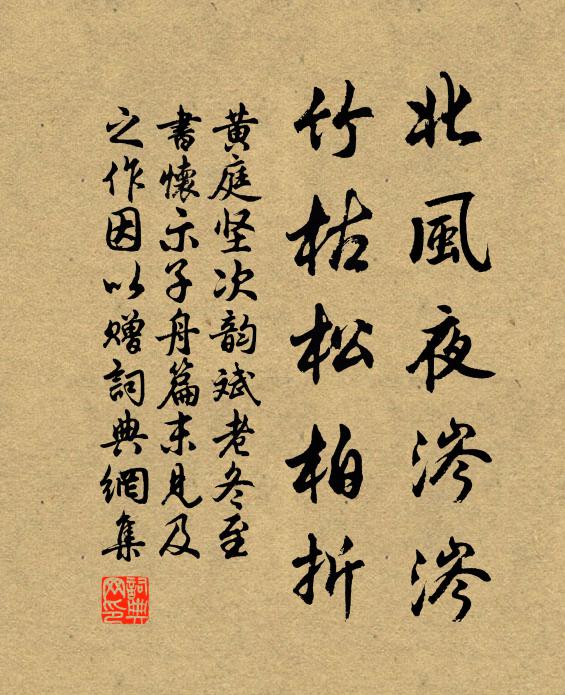 北風夜涔涔
竹枯松柏折
黄庭坚次韵斌老冬至
書懷示子舟篇末見及
之作因以赠詞典網集
詞典网印